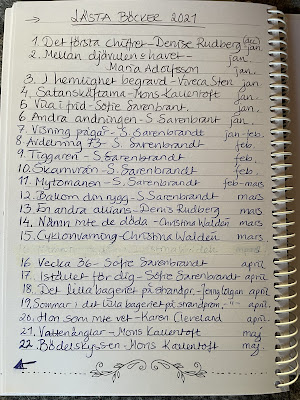 → LÄSTA BÖCKER 2021
1. Det första chiffret - Denise Rudberg (dec) jan
2. Mellan djävulen & havet - jan
Maria Adolfsson
3. I hemlighet begravd - Viveca Sten jan.
4. Satanskäftarna - Mons Kallentoft jan.
5. Vila i frid - Sofie Sarenbrant. jan.
6. Andra andningen - S Sarenbrant jan
7. Visning pågår - S. Sarenbrandt jan-feb.
8. Avdelning 73 - S. Sarenbrandt feb.
9. Tiggaren - S. Sarenbrandt feb.
10. Skamvrån - S. Sarenbrandt feb.
11. Mytomanen - S. Sarenbrandt feb-mars
12. Bakom din rygg - S Sarenbrandt mars
13. En andra allians - Denis Rudberg mars
14. Nämn inte de döda - Christina Waldén mars
15. Cyklonvarning - Christina Waldén mars.
16. Vecka 36 - Sofie Sarenbrandt april
17. Istället för dig - Sofie Sarenbrandt april
18. Det lilla bageriet på strandpr. - Jenny Colgan april
19. Sommar i det lilla bageriet på strandprom, - " - april
20. Hon som inte vet - Karen Cleveland april
21. Vattenänglar - Mons Kallentoft maj
22. Bödelskyssen - Mons Kallentoft maj